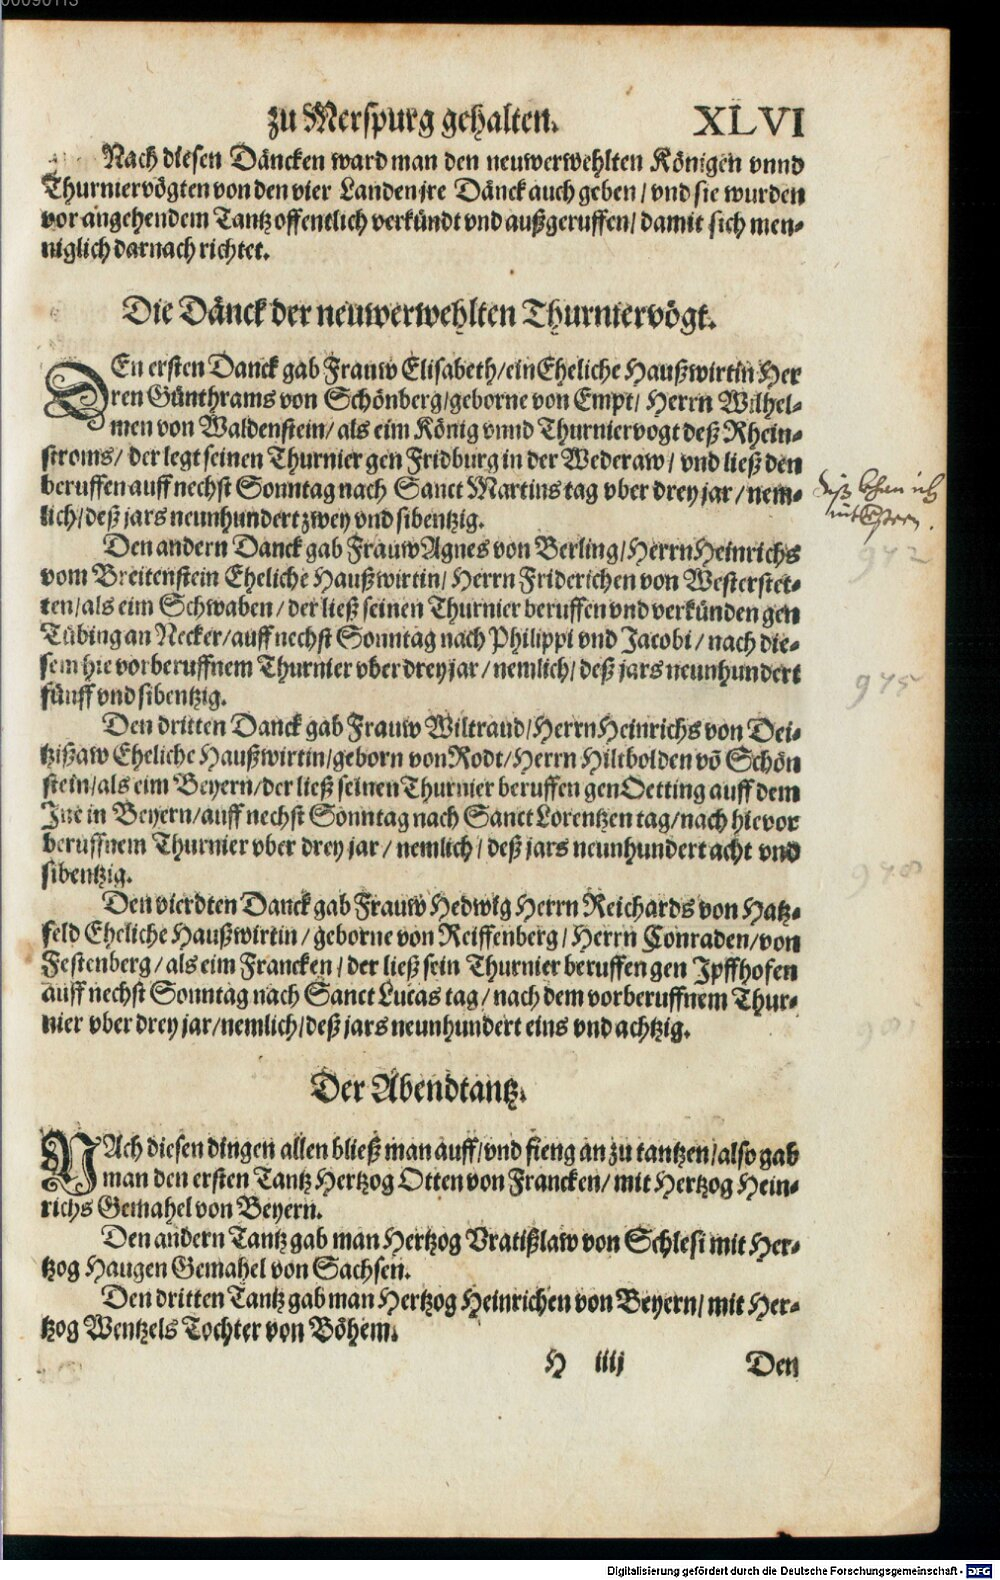 zu Merspurg gehalten.
XLVI
Nach diesen Däncken ward man den neuwerwehlten Königen vnnd
Thurniervögten von den vier Landen jre Dänck auch geben / vnd sie wurden
vor angehendem Tantz offentlich verkündt vnd außgeruffen / damit sich men-
niglich darnach richtet.
Die Dänck der neuwerwehlten Thurniervögt.
DEn ersten Danck gab Frauw Elisabeth / ein Eheliche Haußwirtin Her
ren Günthrams von Schönberg / geborne von Empt / Herrn Wilhel-
men von Waldenstein / als eim König vnnd Thurniervogt deß Rhein-
stroms / der legt seinen Thurnier gen Fridburg in der Wederaw / vnd ließ den
beruffen auff nechst Sonntag nach Sanct Martins tag vber drey jar / nem-
lich / deß jars neunhundert zwey vnd sibentzig.
Den andern Danck gab Frauw Agnes von Berling / Herrn Heinrichs
vom Breitenstein Eheliche Haußwirtin / Herrn Friderichen von Westerstet-
ten / als eim Schwaben / der ließ seinen Thurnier beruffen vnd verkünden gen
Tübing an Necker / auff nechst Sonntag nach Philippi vnd Jacobi / nach die-
sem hie vorberuffnem Thurnier vber drey jar / nemlich / deß jars neunhundert
fünff vnd sibentzig.
Den dritten Danck gab Frauw Wiltraud / Herrn Heinrichs von Dei-
tzißaw Eheliche Haußwirtin / geborn von Rodt / Herrn Hiltbolden võ Schön
stein / als eim Beyern / der ließ seinen Thurnier beruffen gen Oetting auff dem
Jne in Beyern / auff nechst Sonntag nach Sanct Lorentzen tag / nach hievor
beruffnem Thurnier vber drey jar / nemlich / deß jars neunhundert acht vnd
sibentzig.
Den vierdten Danck gab Frauw Hedwig Herrn Reichards von Hatz-
feld Eheliche Haußwirtin / geborne von Reiffenberg / Herrn Conraden / von
Festenberg / als eim Francken / der ließ sein Thurnier beruffen gen Jpffhofen
auff nechst Sonntag nach Sanct Lucas tag / nach dem vorberuffnem Thur-
nier vber drey jar / nemlich / deß jars neunhundert eins vnd achtzig.
972
975
978
981
Der Abendtantz.
NAch diesen dingen allen bließ man auff / vnd fieng an zu tantzen / also gab
man den ersten Tantz Hertzog Otten von Francken / mit Hertzog Hein-
richs Gemahel von Beyern.
Den andern Tantz gab man Hertzog Vratißlaw von Schlesi mit Her-
tzog Haugen Gemahel von Sachsen.
Den dritten Tantz gab man Hertzog Heinrichen von Beyern / mit Her-
tzog Wentzels Tochter von Böhem.
H iiij
Den
Digitalisierung gefördert durch die Deutsche Forschungsgemeinschaft - DFG